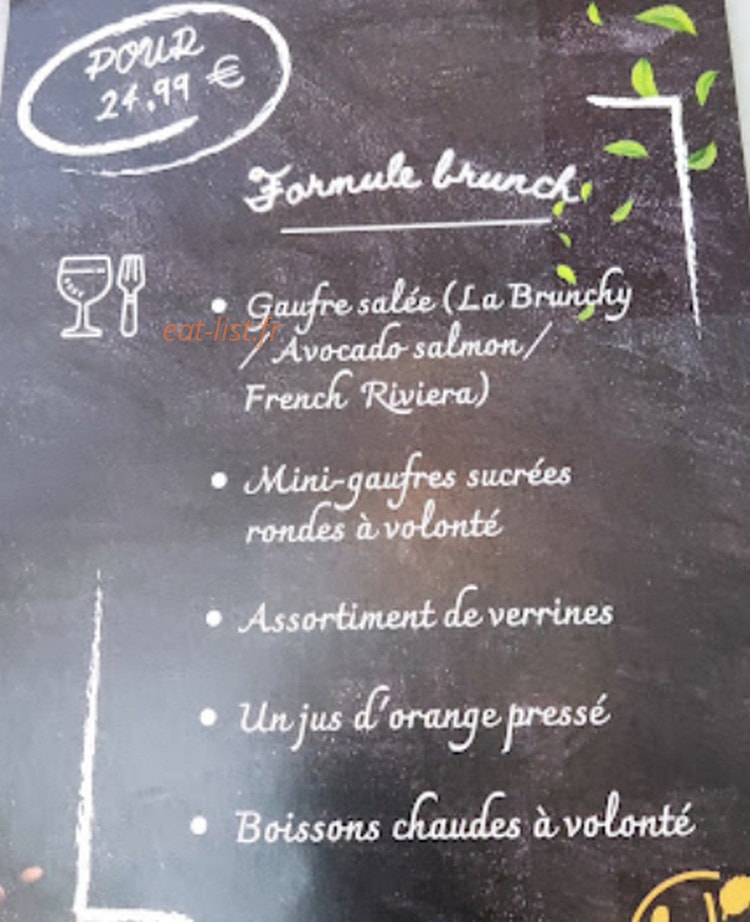 POUR
24,99 €
Formule brunch
• Gaufre salée (La Brunchy
eat-list.fr
/ Avocado salmon /
French Riviera)
• Mini-gaufres sucrées
rondes à volonté
• Assortiment de verrines
• Un jus d'orange pressé
• Boissons chaudes à volonté